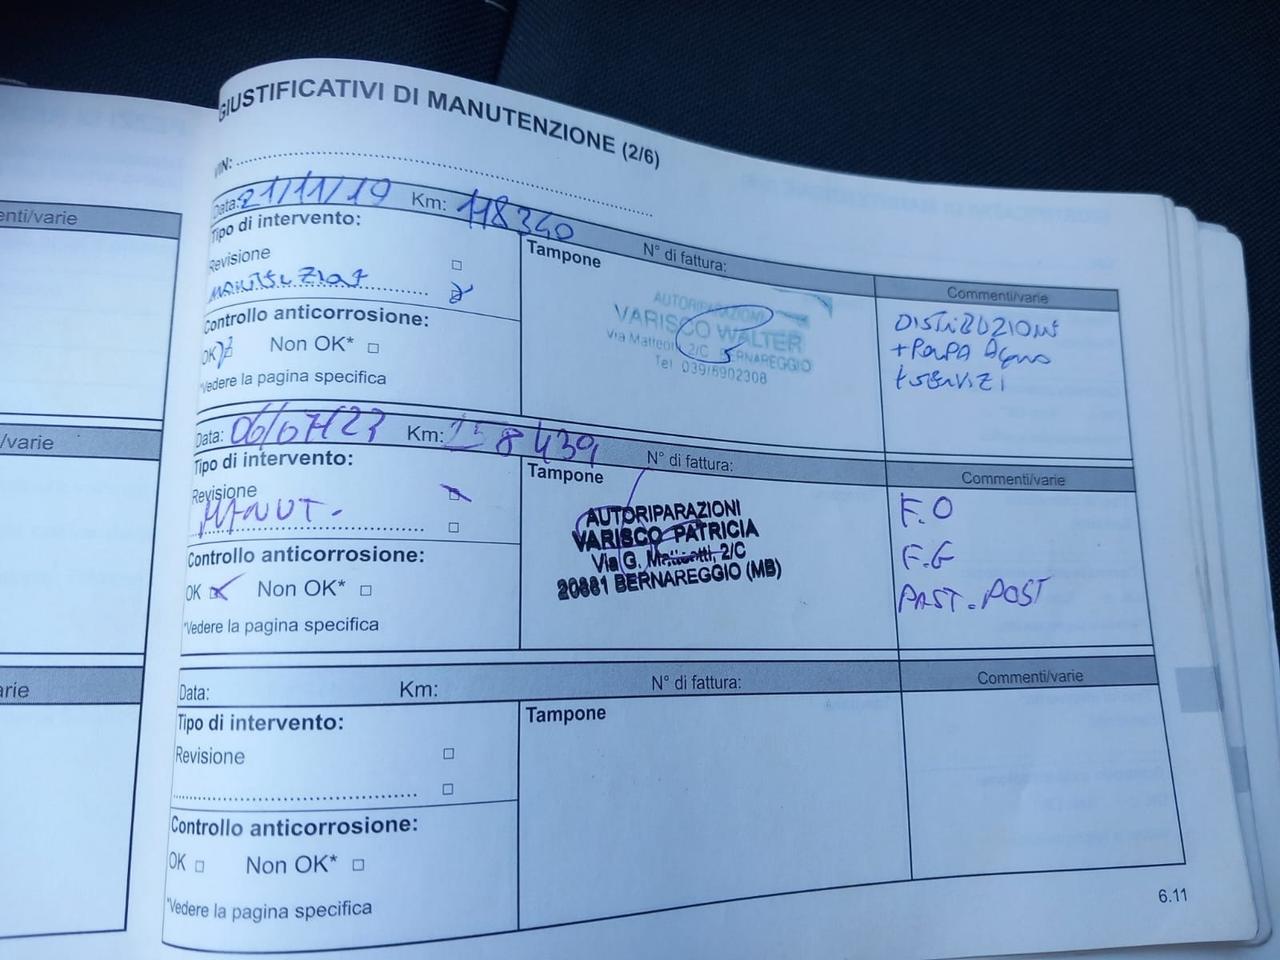 GIUSTIFICATIVI DI MANUTENZIONE (2/6)
VIN:
enti/varie
Data: 21/11/19 Km: 118340 N° di fattura:
Tipo di intervento:
Revisione
Controllo anticorrosione:
OK Non OK*
*Vedere la pagina specifica
Tampone
AUTORIPARAZIONI
VARISCO WALTER
Via Matteotti, 2/C BERNAREGGIO
Tel. 039/6902308
Commenti/varie
DISTRIBUZIONE
+ POMPA ACQUA
+ SERVIZI
/varie
Data: 06/07/23 Km: 158439 N° di fattura:
Tipo di intervento:
Revisione
MANUT.
Controllo anticorrosione:
OK Non OK*
*Vedere la pagina specifica
Tampone
AUTORIPARAZIONI
VARISCO PATRICIA
Via G. Matteotti, 2/C
20881 BERNAREGGIO (MB)
Commenti/varie
F.O
F.G
PAST. POST
arie
Data: Km: N° di fattura:
Tipo di intervento:
Revisione
Controllo anticorrosione:
OK Non OK*
*Vedere la pagina specifica
Tampone
Commenti/varie
6.11